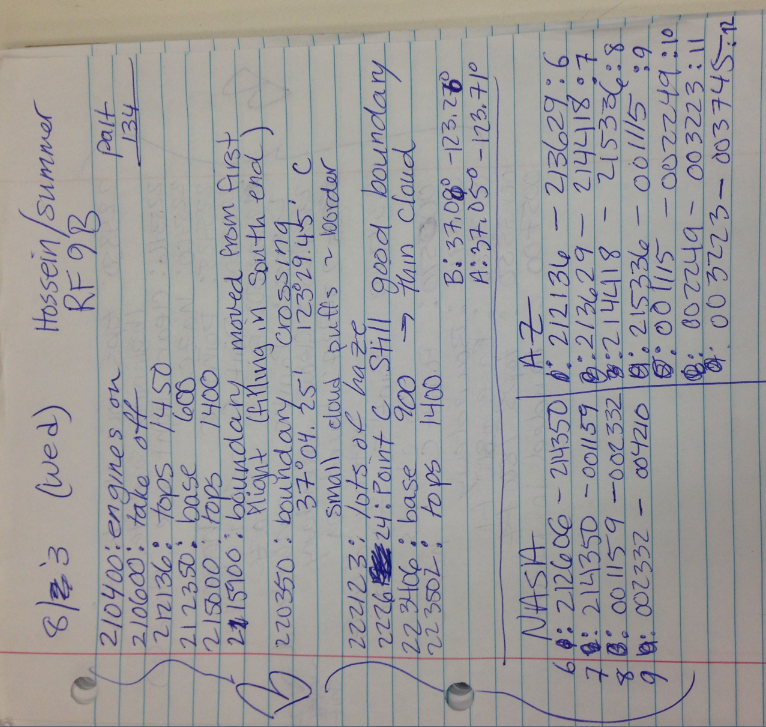 8/3 (wed) Hossein/Summer
RF 9B
palt
134
210400: engines on
210600: take off
212136: tops 1450
212350: base 600
215000: tops 1400
215900: boundary moved from first
flight (filling in South end)
220350: boundary crossing
37°04.25' 123°29.45' C
small cloud puffs ~ border
222123: lots of haze
222624: Point C Still good boundary
223406: base 900 → thin cloud
223502: tops 1400
B: 37.08° -123.26°
A: 37.05° -123.71°
NASA
6: 212606 - 214350
7: 214350 - 001159
8: 001159 - 002332
9: 002332 - 004210
AZ
: 212136 - 213629 : 6
: 213629 - 214418 : 7
: 214418 - 215336 : 8
: 215336 - 001115 : 9
: 001115 - 002249 : 10
: 002249 - 003223 : 11
: 003223 - 003745 : 12